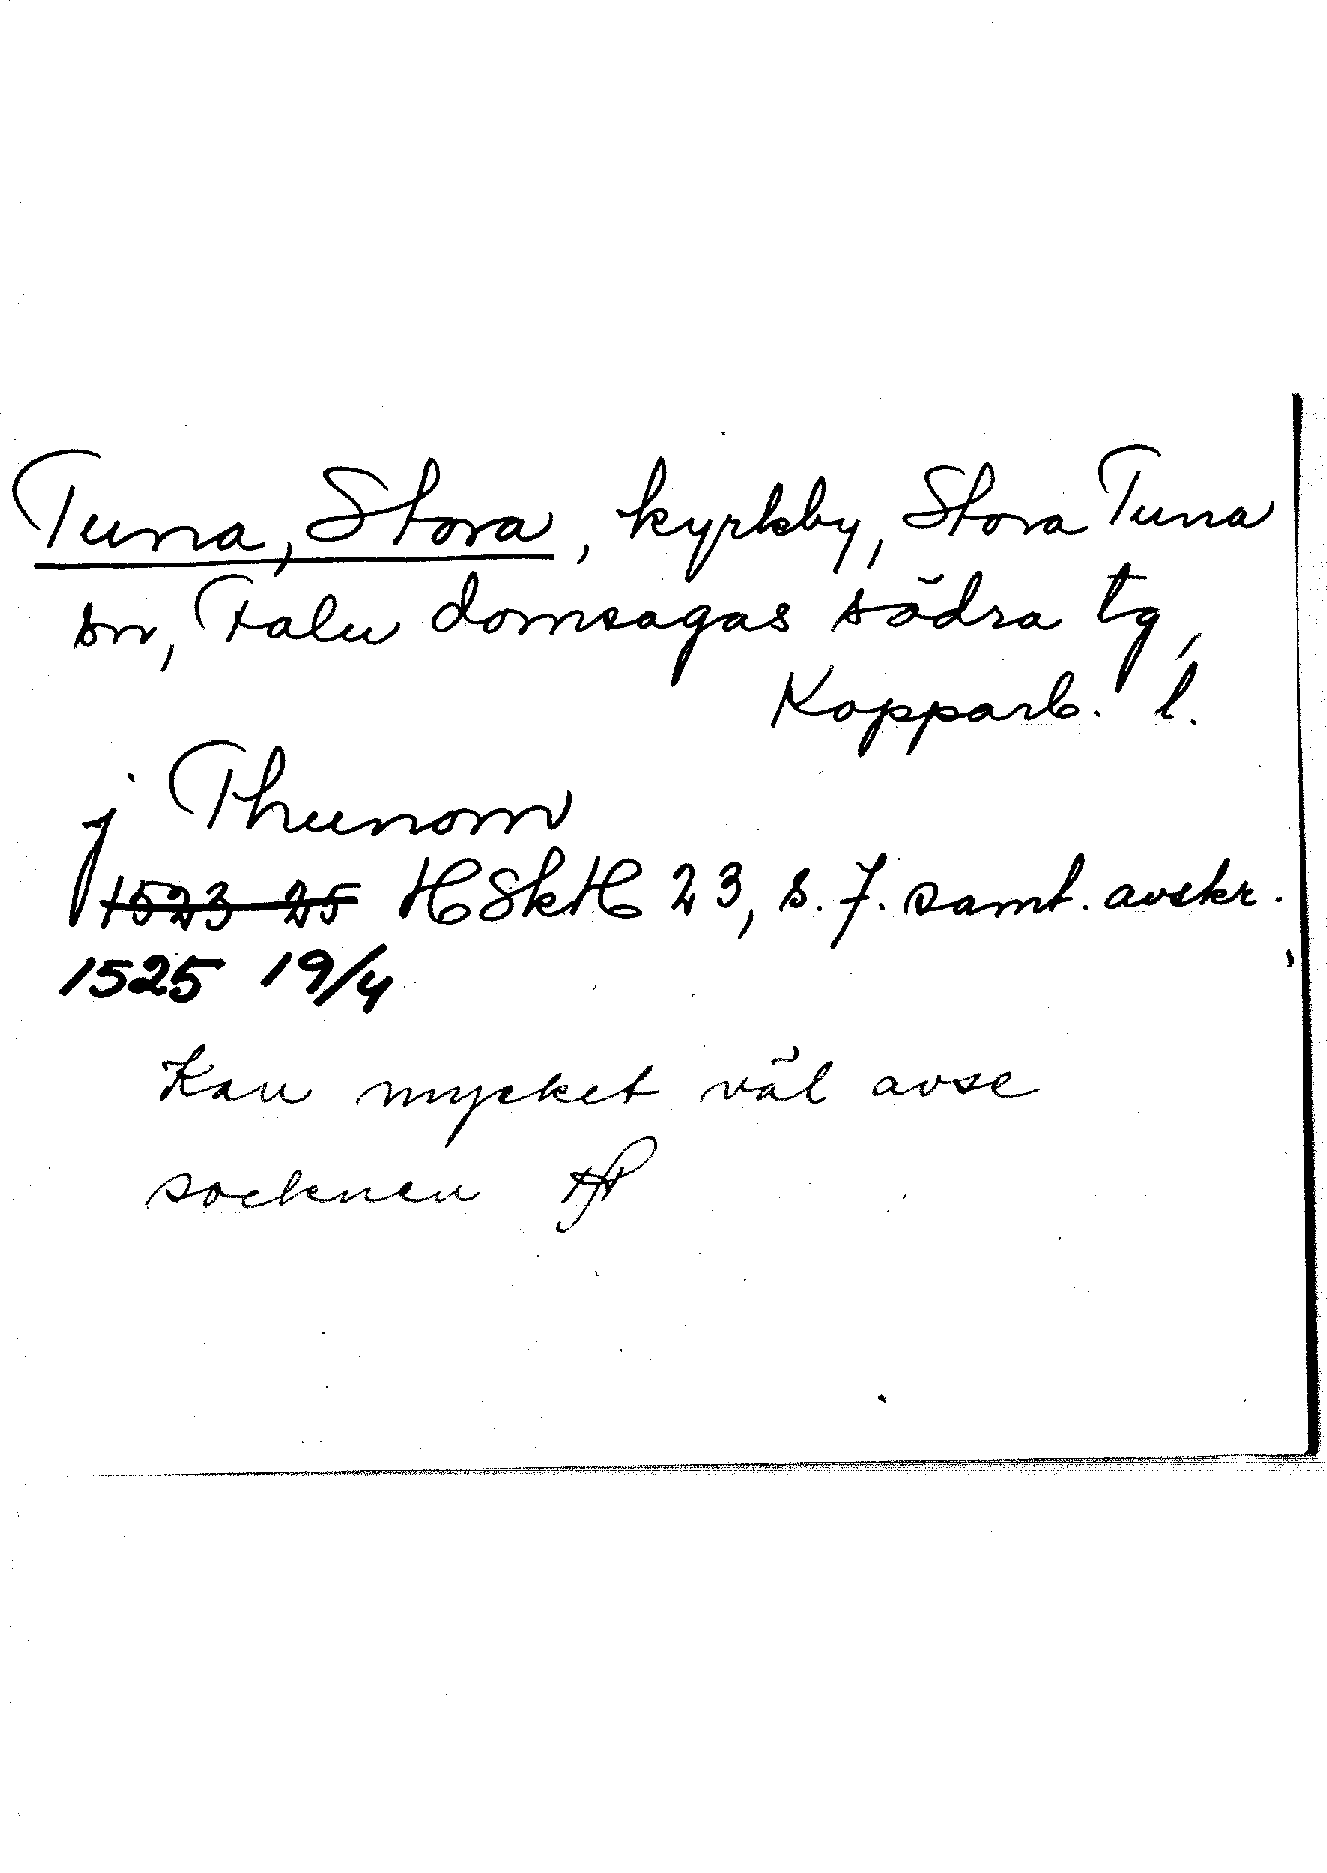 Tuna, Stora, kyrkby, Stora Tuna
sn, Falu domsagas södra tg,
Kopparb. l.
j Thunom
1523-25 HSkH 23, s. 7. samt. avskr.
1525 19/4
Kan mycket väl avse
socknen